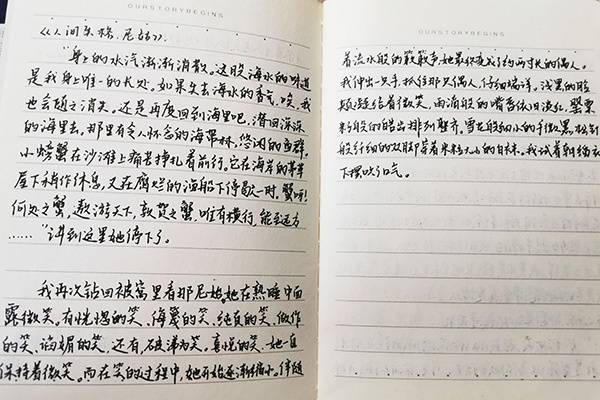 OURSTORYBEGINS
《人间失格.尼姑》
"身上的水汽渐渐消散。这股海水的味道
是我身上唯一的长处。如果失去海水的香气,唉,我
也会随之消失。还是再度回到海里吧,潜回深深
的海里去。那里有令人怀念的海带林,悠闲的鱼群,
小螃蟹在沙滩上痛苦挣扎着前行。它在海岸的茅草
屋下稍作休息,又在腐烂的渔船下停歇一时。蟹呀!
何处之蟹,遨游天下,敦贺之蟹,唯有横行,能至远方
……"讲到这里她停下了。
我再次钻回被窝里看那尼姑。她在熟睡中面
露微笑。有恍惚的笑、侮蔑的笑、纯真的笑、做作
的笑、谄媚的笑、还有,破涕为笑。喜悦的笑、她一直
保持着微笑。而在笑的过程中,她开始逐渐缩小。伴随
OURSTORYBEGINS
着流水般的簌簌声,她最终变成了约两寸长的偶人。
我伸出一只手,抓住那只偶人,仔细端详。浅黑的脸
颊凝结着微笑,雨滴般的嘴唇依旧淡红,罂粟
籽般的皓齿排列整齐,雪花般细小的手微黑,松针
般纤细的双脚穿着米粒大小的白袜。我试着朝缁衣
下摆吹口气。